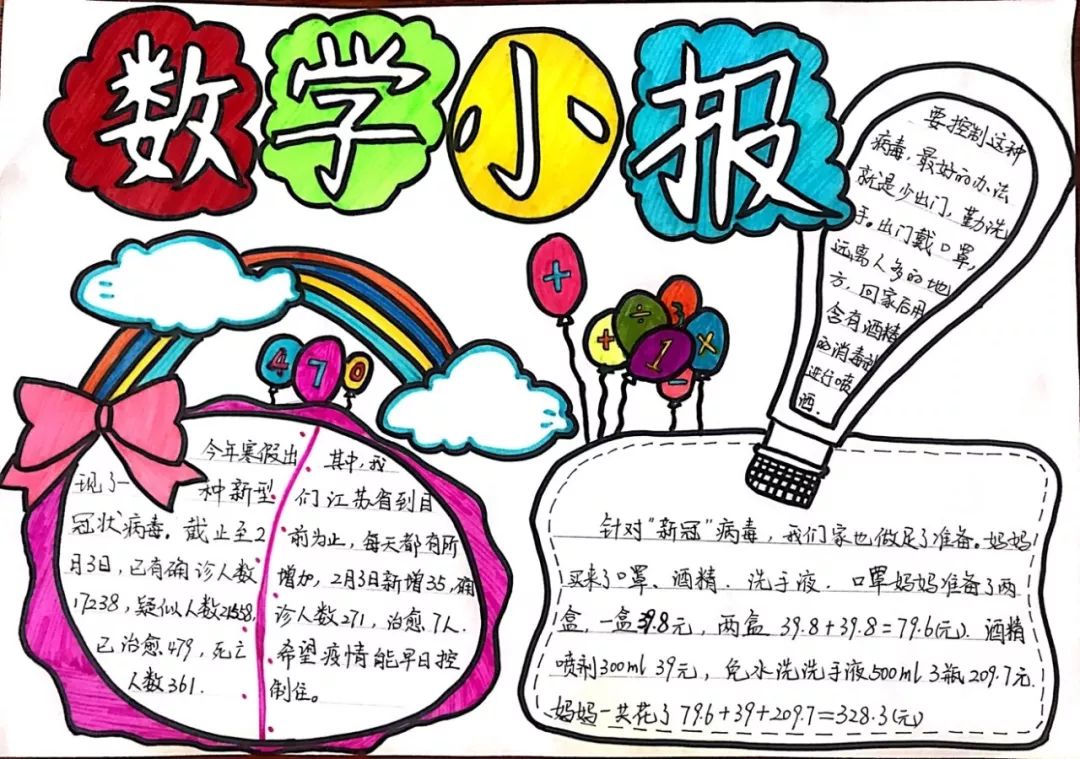 数学小报
要控制这种
病毒,最好的办法
就是少出门,勤洗
手。出门戴口罩,
远离人多的地
方,回家后用
含有酒精
的消毒
进行喷
洒.
+
÷
3
+
1
×
-
4
7
0
今年寒假出
现了一种新型
冠状病毒。截止至2
月3日,已有确诊人数
17238,疑似人数21558,
已治愈479,死亡
人数361.
其中,我
们江苏省到目
前为止,每天都有所
增加,2月3日新增35,确
诊人数271,治愈7人.
希望疫情能早日控
制住。
针对"新冠"病毒,我们家也做足了准备。妈妈
买来了口罩、酒精.洗手液.口罩妈妈准备了两
盒,一盒39.8元,两盒 39.8+39.8=79.6(元).酒精
喷剂300ml 39元,免水洗洗手液500ml 3瓶209.7元.
妈妈一共花了 79.6+39+209.7=328.3(元)